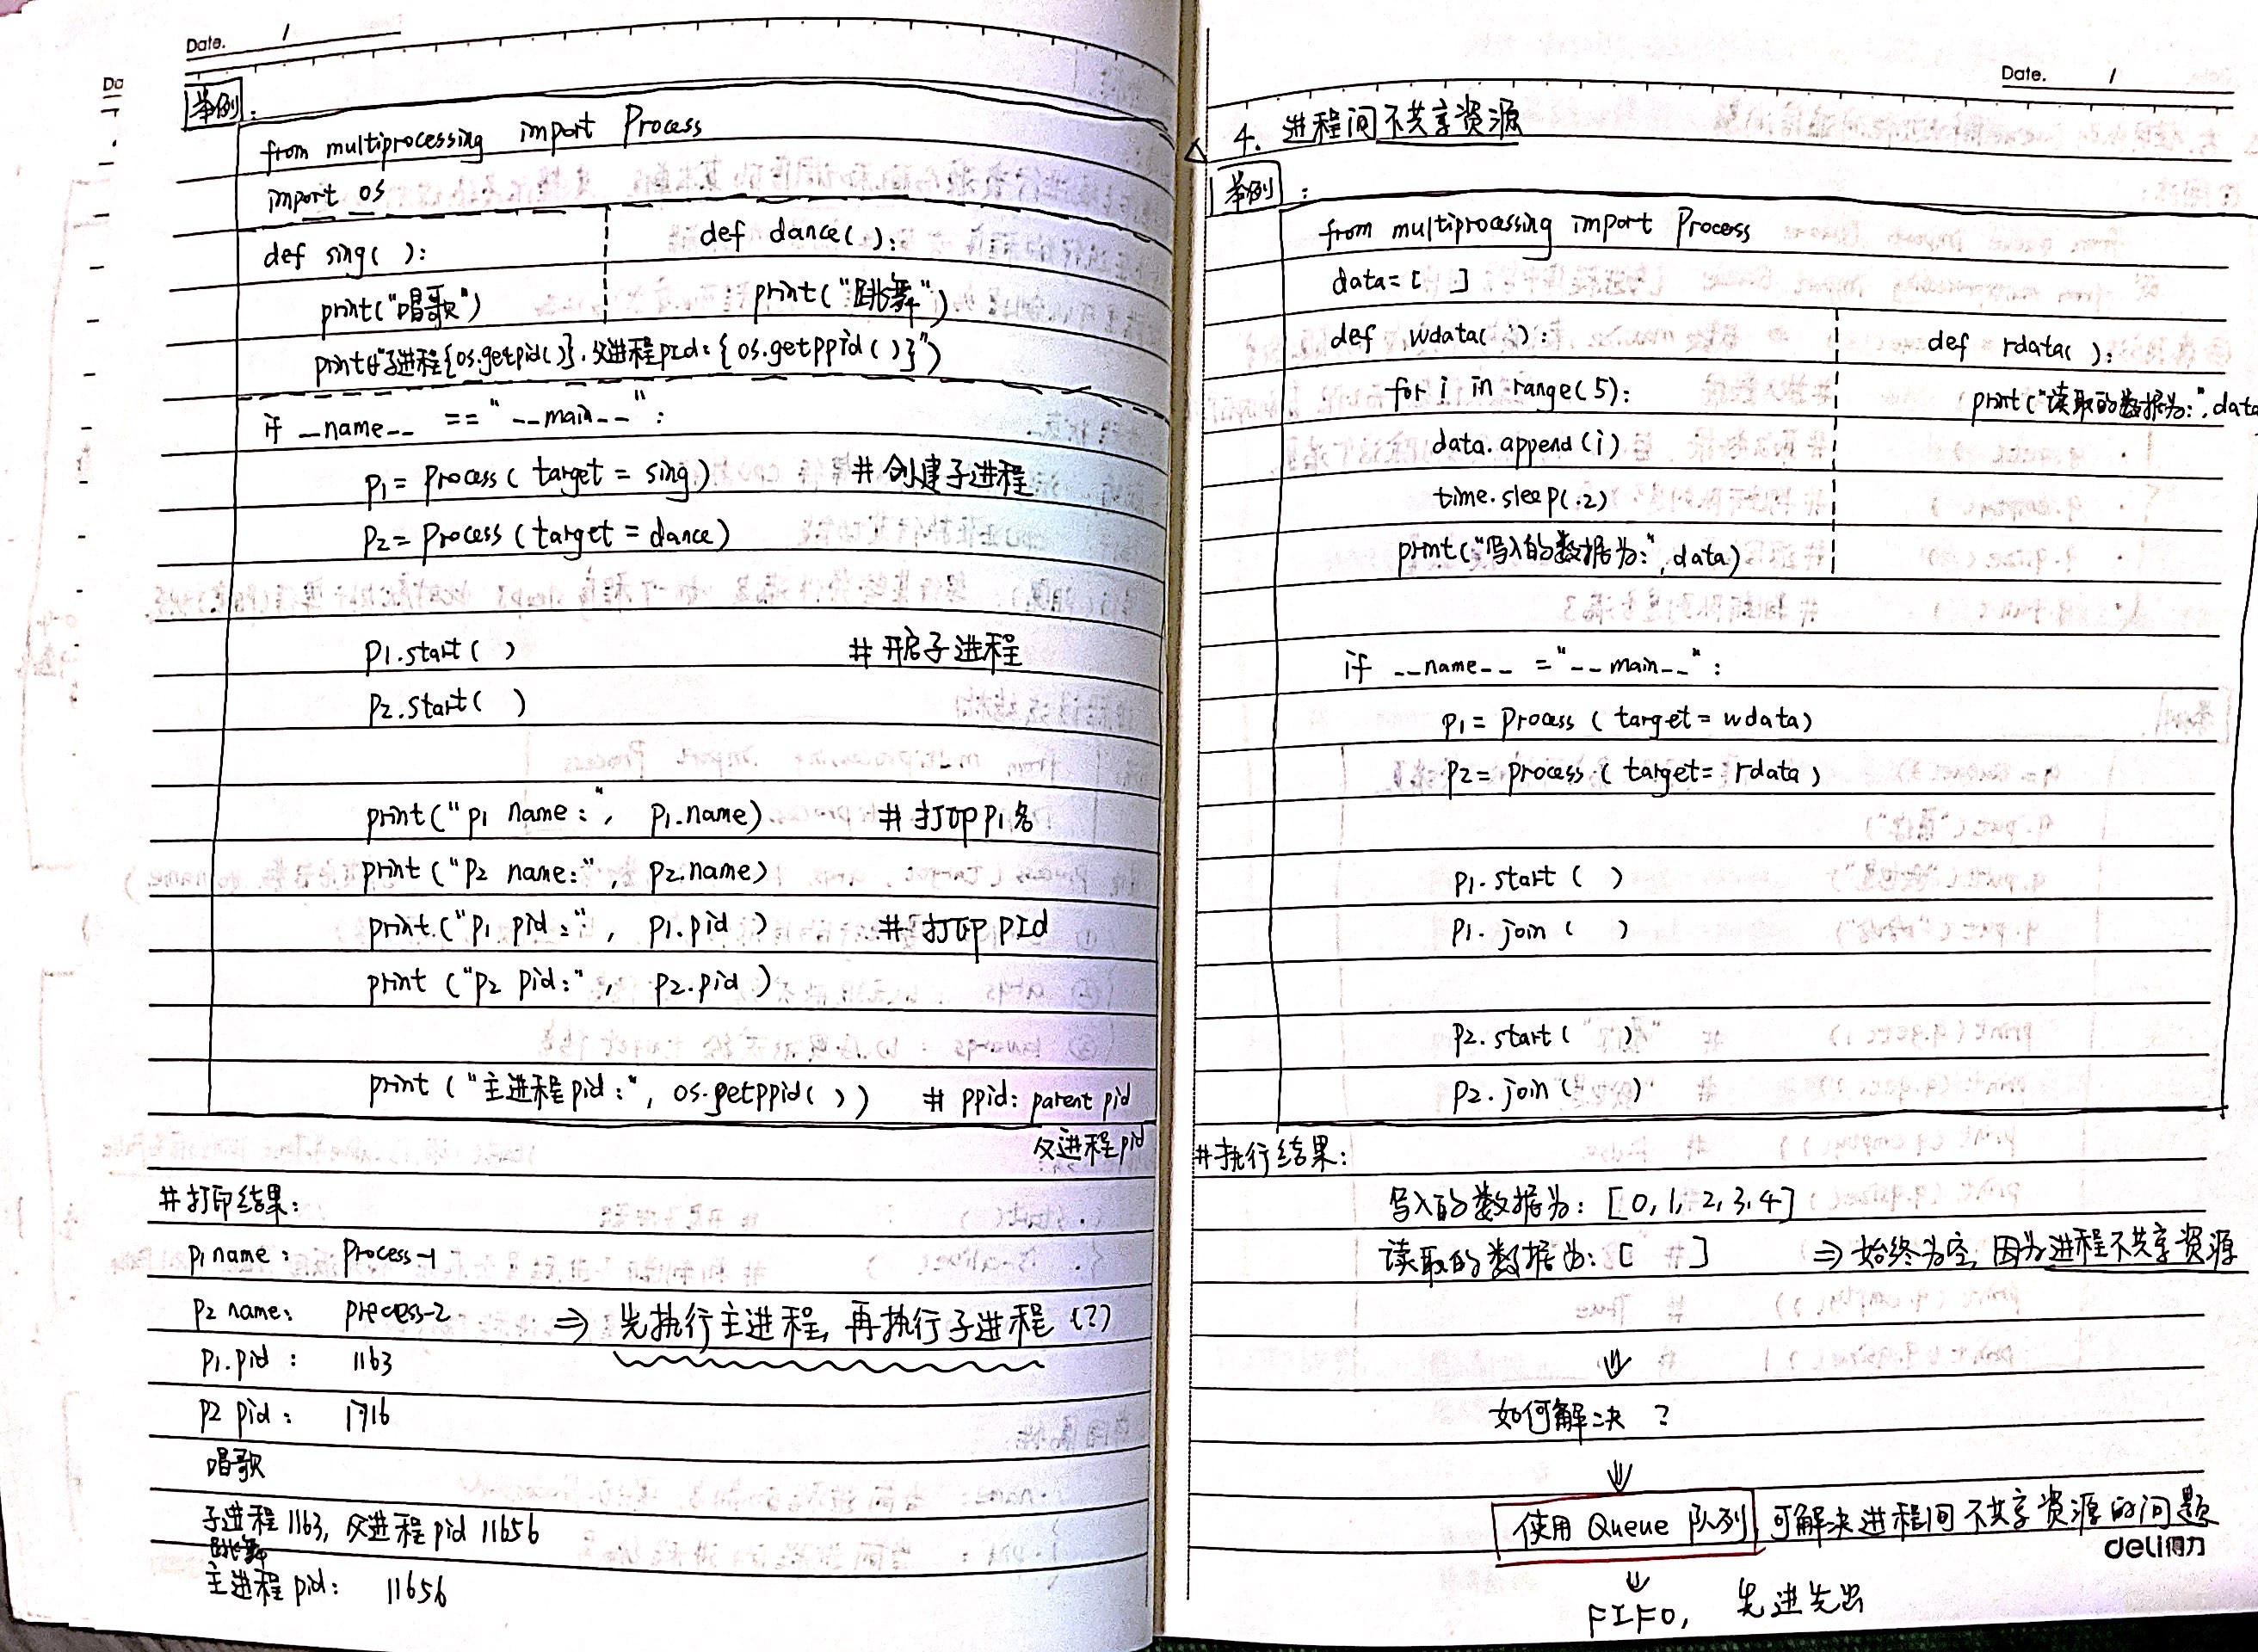 Date. /
举例:
from multiprocessing import Process
import os
def sing( ):
print("唱歌")
def dance( ):
print("跳舞")
print(f"子进程{os.getpid( )}, 父进程pid: { os.getppid( )}")
if __name__ == "__main__":
p1 = Process( target = sing) # 创建子进程
p2 = Process( target = dance)
p1.start( ) # 开启子进程
p2.start( )
print("p1 name:", p1.name) # 打印p1名
print("p2 name:", p2.name)
print("p1 pid:", p1.pid ) # 打印 pid
print("p2 pid:", p2.pid )
print("主进程pid:", os.getppid( )) # ppid: parent pid
父进程pid
#打印结果:
p1 name: Process-1
p2 name: process-2 ⇒ 先执行主进程, 再执行子进程 (?)
p1.pid: 1163
p2 pid: 1716
唱歌
子进程 1163, 父进程 pid 11656
跳舞
主进程 pid: 11656
Date. /
4. 进程间不共享资源
举例:
from multiprocessing import Process
data = [ ]
def wdata( ):
for i in range(5):
data.append(i)
time.sleep(.2)
print("写入的数据为:", data)
def rdata( ):
print("读取的数据为:", data
if __name__ = "__main__":
p1 = Process ( target = wdata)
p2 = process ( target = rdata )
p1.start ( )
p1.join ( )
p2.start ( )
p2.join ( )
#执行结果:
写入的数据为: [0, 1, 2, 3, 4]
读取的数据为: [ ] ⇒ 始终为空, 因为进程不共享资源
⇓
如何解决 ?
⇓
使用 Queue 队列, 可解决进程间不共享资源的问题
deli得力
⇓
FIFO, 先进先出